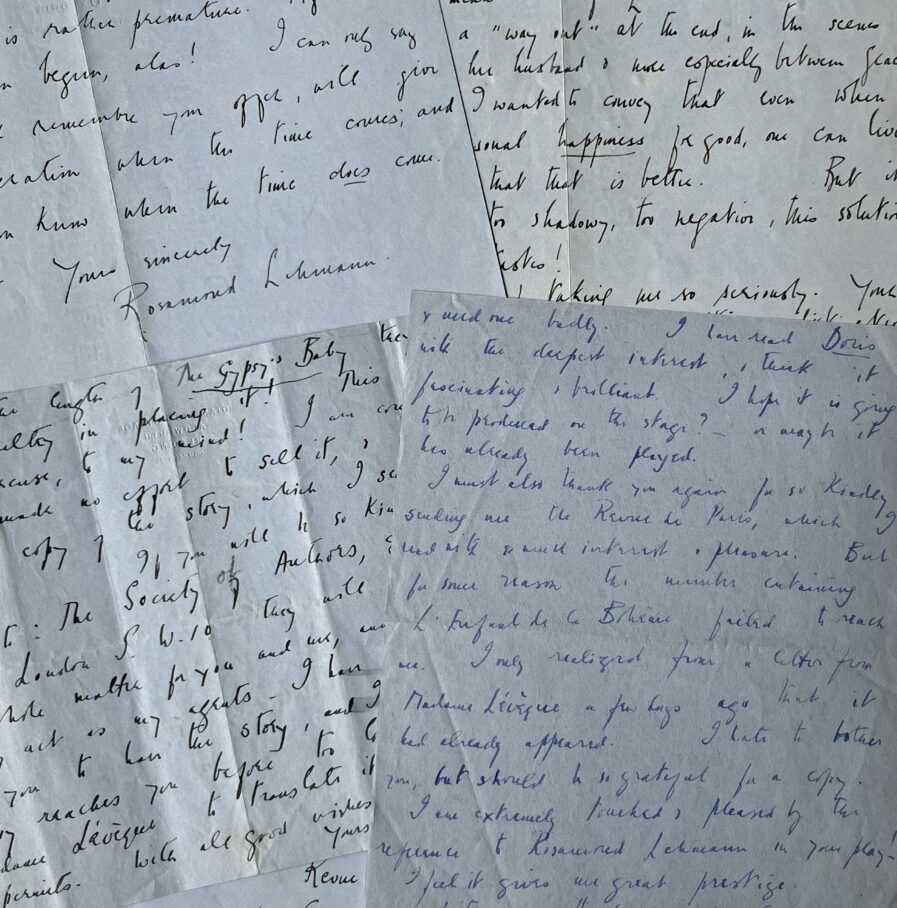 is rather premature.
begun, alas! I can only say
remember your offer, will give
eration when the time comes; and
know when the time does come.
Yours sincerely
Rosamond Lehmann.
a "way out" at the end, in the scenes
her husband & more especially between Grac
I wanted to convey that even when
sonal happiness for good, one can live
that that is better. But it
too shadowy, too negative, this solution
taking me so seriously. Your
length of The Gypsy's Baby
culty in placing it! This
excuse, to my mind! I am
made no effort to sell it, &
copy of the story, which I
If you will be so kin
to: The Society of Authors,
London S.W.10 they will
whole matter for you and me, and
act as my agents. I have
you to have the story, and I
reaches you before too
dame Lévêque to translate it
permits. With all good wishes
Yours
Revue
& need me badly. I have read Doris
with the deepest interest, & think it
fascinating & brilliant. I hope it is going
to be produced on the stage? – or maybe it
has already been played.
I must also thank you again for so kindly
sending me the Revue de Paris, which I
read with so much interest & pleasure. But
for some reason the number containing
L'Enfant de la Bohème failed to reach
me. I only realized from a letter from
Madame Lévêque a few days ago that it
had already appeared. I hate to bother
you, but should be so grateful for a copy.
I am extremely touched & pleased by the
reference to Rosamond Lehmann in your play! –
I feel it gives me great prestige.